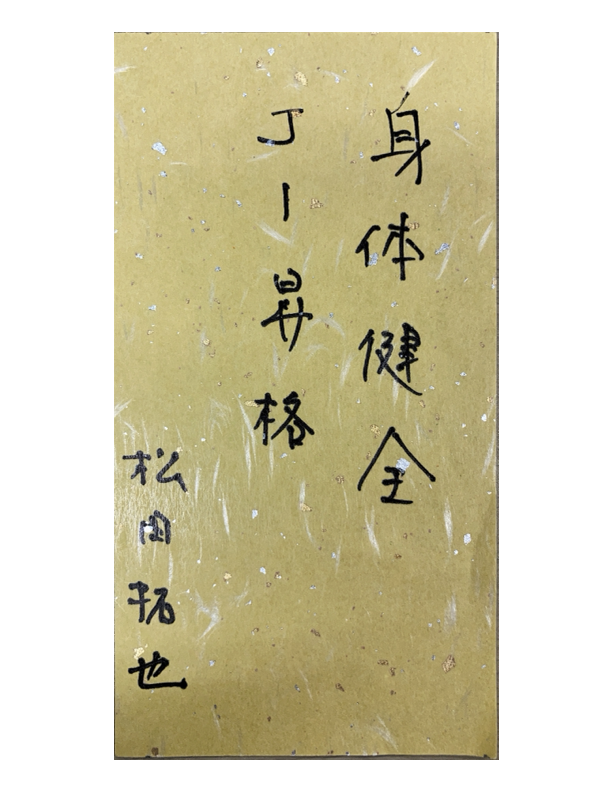 身体健全
J1昇格
松田拓也